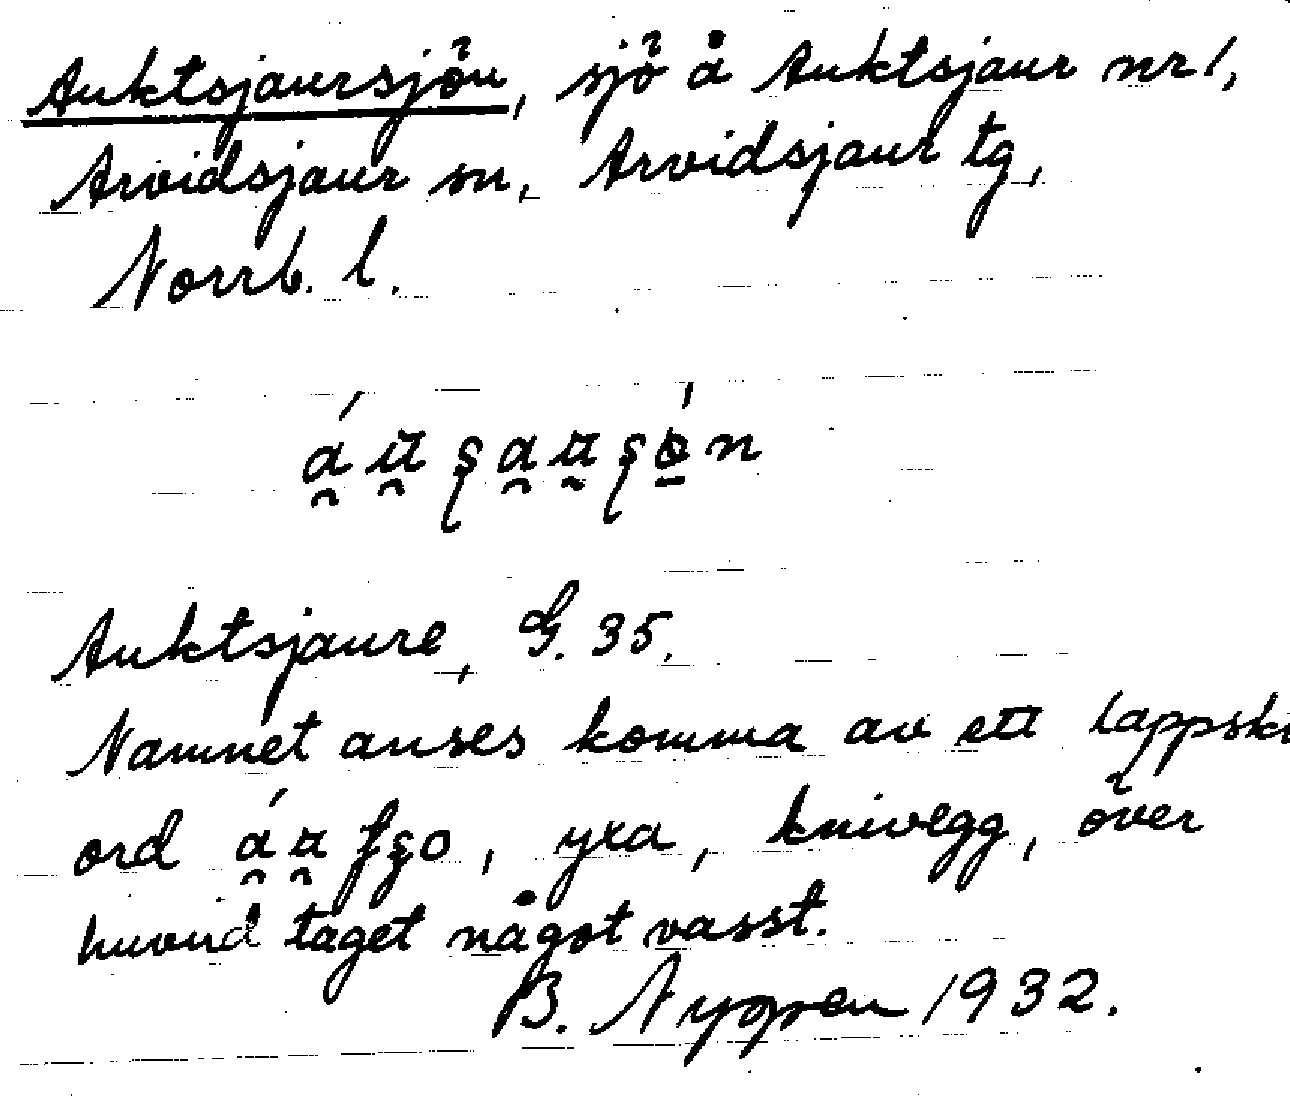 Auktsjaursjön, sjö å Auktsjaur nr 1,
Arvidsjaur sn, Arvidsjaur tg,
Norrb. l.
Auktsjaure, G. 35.
Namnet anses komma av ett lappskt
ord , yxa, knivegg, över
huvud taget något vasst.
B. 1932.